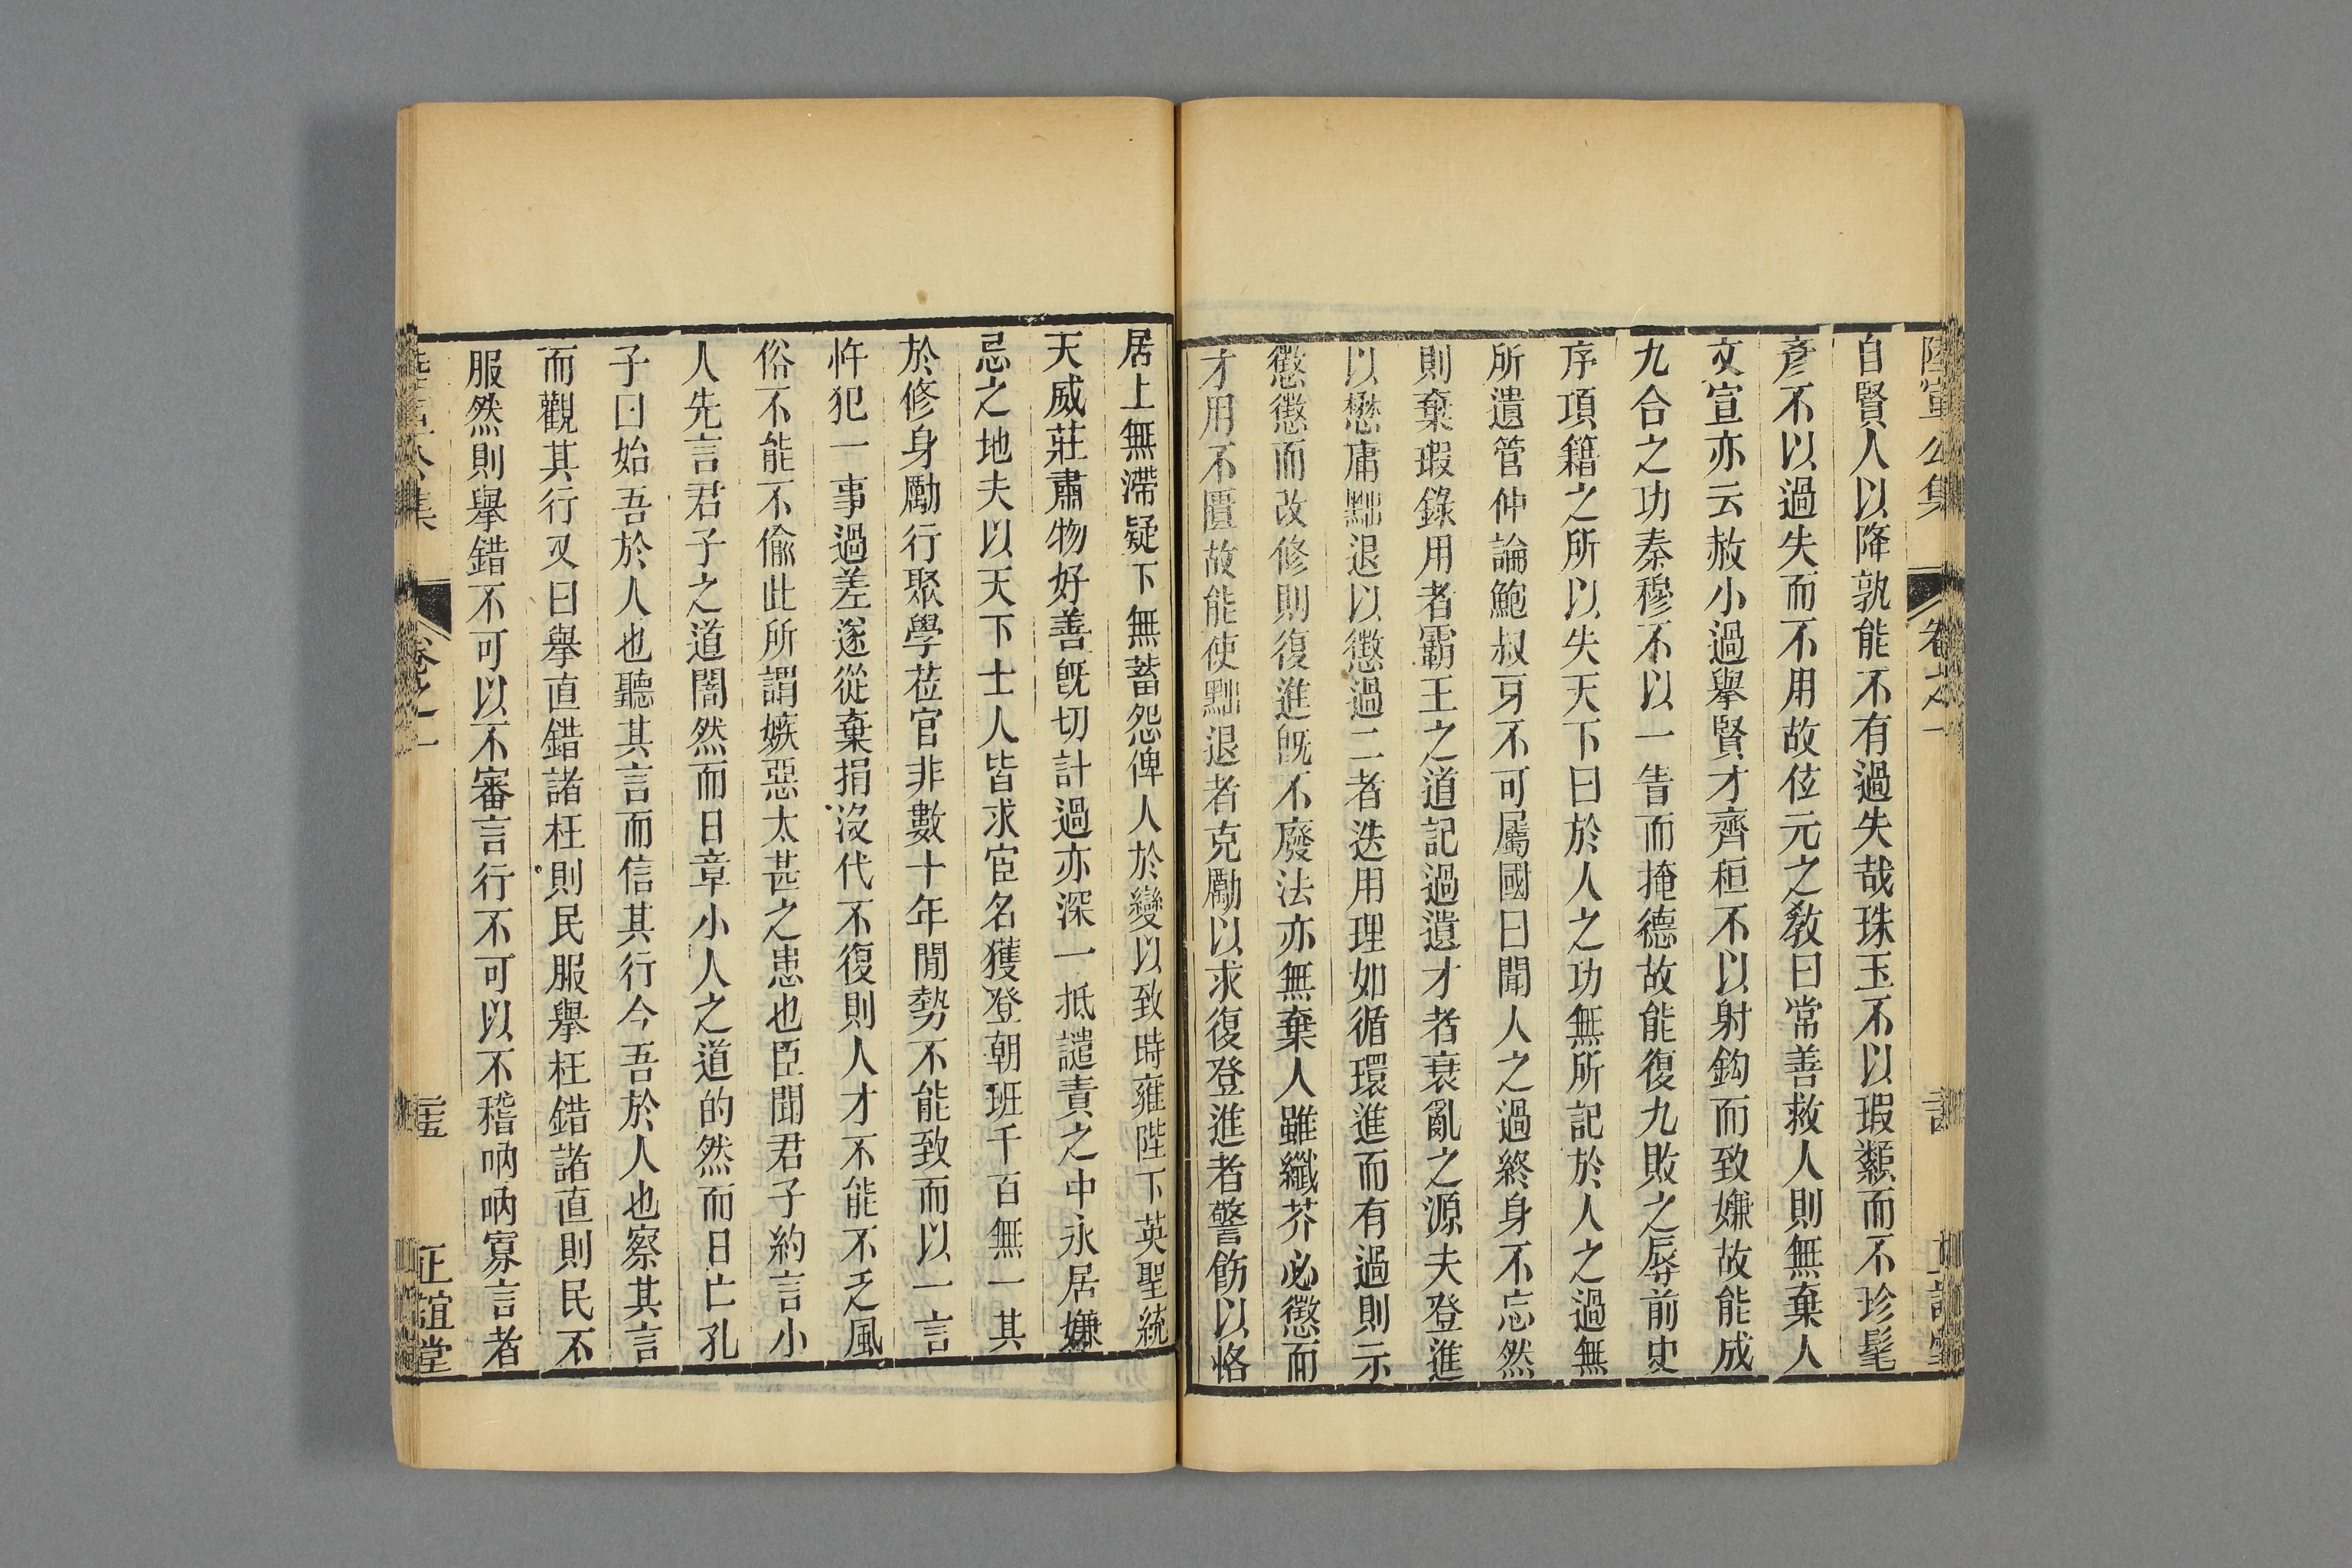 陸宣公集 卷之一
自賢人以降孰能不有過失哉珠玉不以瑕纇而不珍髦
彥不以過失而不用故伭元之敎曰常善救人則無棄人
文宣亦云赦小過舉賢才齊桓不以射鈎而致嫌故能成
九合之功秦穆不以一眚而掩德故能復九敗之辱前史
序項籍之所以失天下曰於人之功無所記於人之過無
所遺管仲論鮑叔牙不可屬國曰聞人之過終身不忘然
則棄瑕錄用者霸王之道記過遺才者衰亂之源夫登進
以懋庸黜退以懲過二者迭用理如循環進而有過則示
懲懲而改修則復進旣不廢法亦無棄人雖纖芥必懲而
才用不匱故能使黜退者克勵以求復登進者警飭以恪
居上無滯疑下無蓄怨俾人於變以致時雍陛下英聖統
天威莊肅物好善旣切計過亦深一抵譴責之中永居嫌
忌之地夫以天下士人皆求宦名獲登朝班千百無一其
於修身勵行聚學莅官非數十年閒勢不能致而以一言
忤犯一事過差遂從棄捐沒代不復則人才不能不乏風
俗不能不偷此所謂嫉惡太甚之患也臣聞君子約言小
人先言君子之道闇然而日章小人之道的然而日亡孔
子曰始吾於人也聽其言而信其行今吾於人也察其言
而觀其行又曰舉直錯諸枉則民服舉枉錯諸直則民不
服然則舉錯不可以不審言行不可以不稽吶吶寡言者
集 卷之一 正誼堂